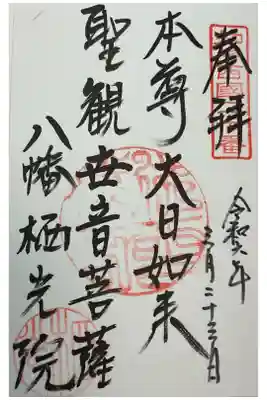 奉拝
令和六年
三月二十三日
本尊 大日如来
聖観世音菩薩
八幡 栖光院